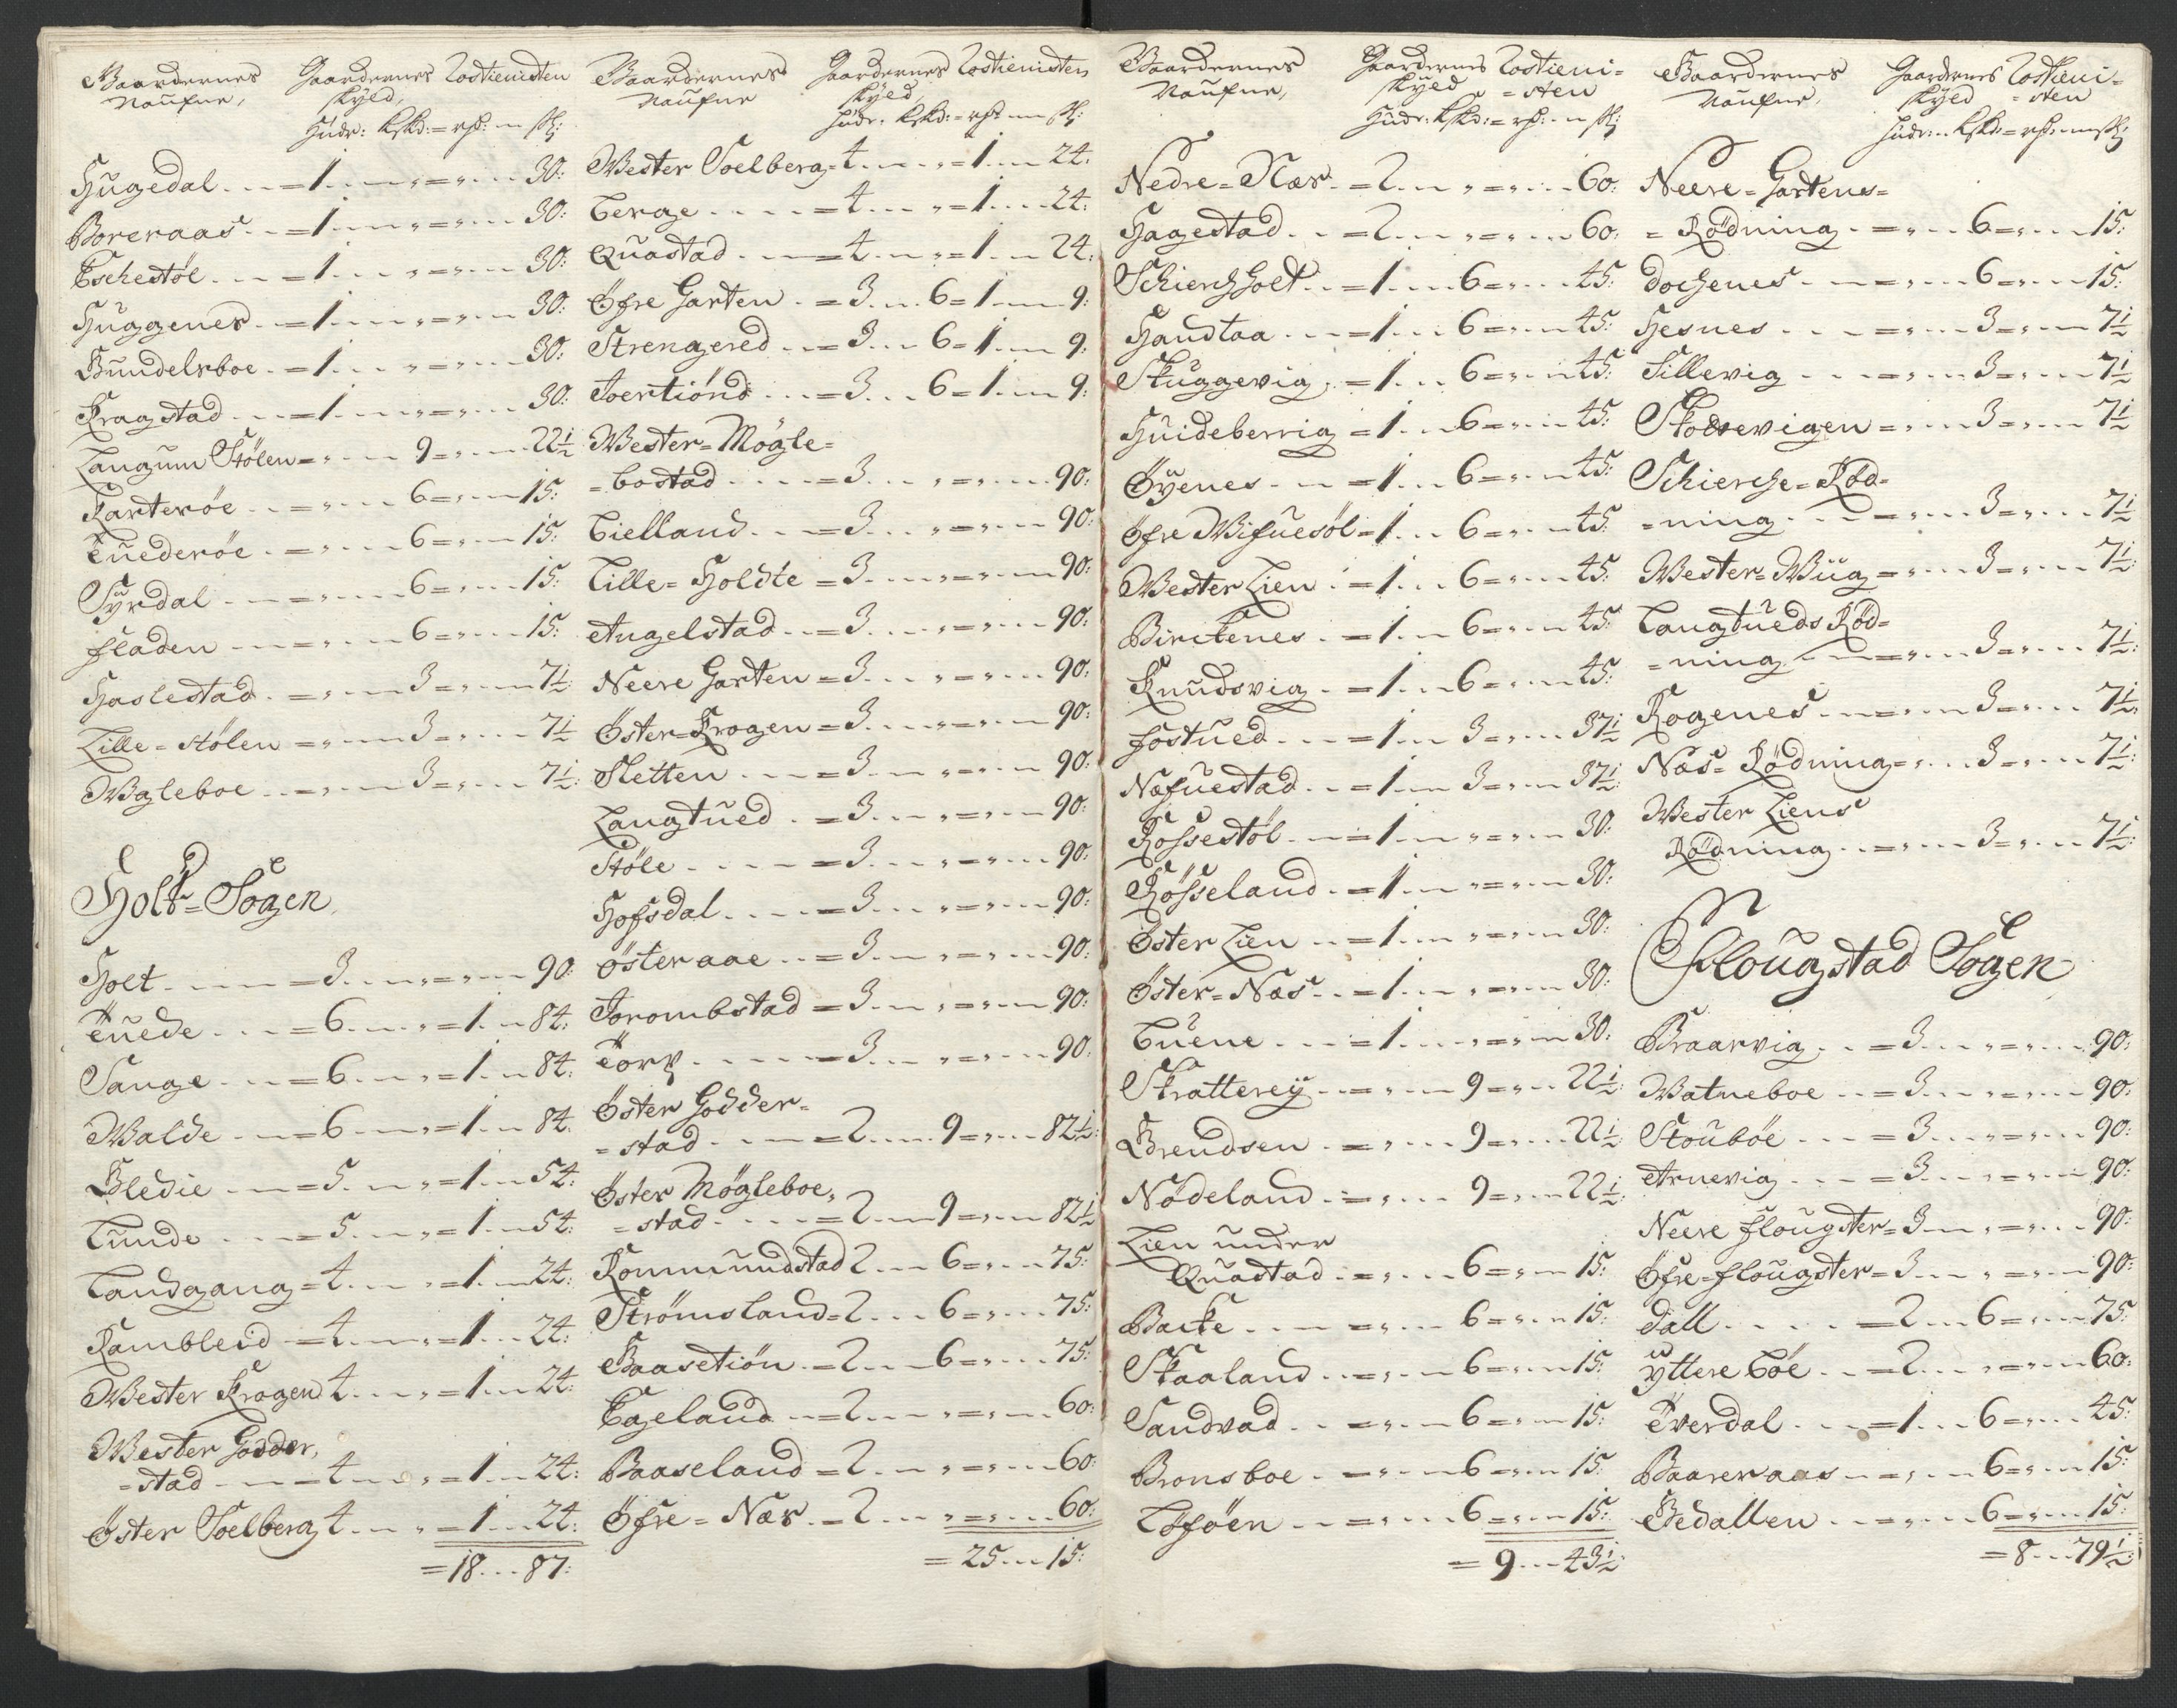 Gaardernes Gaardernes Rostienisten
Naufne, skyld,
Hudr: kskd: = rd: sk:
Hugedal 1 " = " 30:
Boreraas 1 " = " 30:
Eschestøl 1 " = " 30:
Huggenes 1 " = " 30:
Gundelsboe 1 " = " 30:
Kragstad 1 " = " 30:
Langum Stølen = " 9 = " 22½
Karterøe = " 6 = " 15:
Tuederøe = " 6 = " 15:
Syrdal = " 6 = " 15:
fladen = " 6 = " 15:
Haslestad = " 3 = " 7½:
Lille = stølen = " 3 = " 7½
Wgleboe = " 3 = " 7½:
Holt = Sogen
Holt = 3 " = " 90:
Tuede = 6 " = 1 84:
Sange = 6 " = 1 84:
Walde = 6 " = 1 84:
Gledie = 5 " = 1 54:
Lunde = 5 " = 1 54:
Landgang = 4 " = 1 24:
Rambleid = 4 " = 1 24:
Wester Krogen 4 " = 1 24:
Wester Godder,
= stad = 4 " = 1 24:
Øster Soelberg 4 " = 1 24:
= 18 87:
Gaardernes Gaardernes Rostienisten
Naufne skyld
Hudr: kskd: = rd: sk:
Wester Soelberg = 4 " = 1 24:
Berge = 4 " = 1 24:
Quastad = 4 " = 1 24:
Øfre Garten = 3 6 = 1 9:
Strengered = 3 6 = 1 9:
Joertiónd = 3 6 = 1 9:
Wester = Mögle =
= bostad = 3 " = " 90:
Lielland = 3 " = " 90:
Lille = Holdte = 3 " = " 90:
Angelstad = 3 " = " 90:
Neere Garten = 3 " = " 90:
Øster = Krogen = 3 " = " 90:
Sletten = 3 " = " 90:
Langtued = 3 " = " 90:
Støle = 3 " = " 90:
Hofsdal = 3 " = " 90:
østeraae = 3 " = " 90:
Jorombstad = 3 " = " 90:
Torp = 3 " = " 90:
Øster Godder =
= stad = 2 9 = " 82½:
Øster Mögleboe,
= stad = 2 9 = " 82½
Rommundstad 2 6 = " 75:
Strømsland = 2 6 = " 75:
Baasetiön = 2 6 = " 75:
Egeland = 2 " = " 60:
Baaseland = 2 " = " 60:
Øfre = Nær = 2 " = " 60:
= 25 15:
Gaardernes Gaardernes Rostieni =
Naufne, skyld = sten
Hudr: kskd: = rd: sk:
Nedre = Nær = 2 " = " 60:
Hagestad = 2 " = " 60:
Schierchholt = 1 6 = " 45:
Handtaa = 1 6 = " 45:
Skuggevig = 1 6 = " 45:
Huideberrig = 1 6 = " 45:
Øyenes = 1 6 = " 45:
Øfre Wifuesøl = 1 6 = " 45:
Wester Lien = 1 6 = " 45:
Birckenes = 1 6 = " 45:
Knudsvig = 1 6 = " 45:
fostued = 1 3 = " 37½
Næfuestad = 1 3 = " 37½:
Rossestøl = 1 " = " 30:
Røsseland = 1 " = " 30:
Øster Lien = 1 " = " 30:
Øster = Næs = 1 " = " 30:
Tuene = 1 " = " 30:
Skratterey = " 9 = " 22½:
Brendsen = " 9 = " 22½:
Nødeland = " 9 = " 22½:
Lien under
Quastad = " 6 = " 15:
Backe = " 6 = " 15:
Skaaland = " 6 = " 15:
Sandvad = " 6 = " 15:
Bronsboe = " 6 = " 15:
Løføen = " 6 = " 15:
= 9 43½:
Gaardernes Gaardernes Rostieni =
Naufne, skyld = sten
Hudr: kskd: = rd: sk:
Neere = Gartens =
= Rödning = " 6 = " 15:
dochenes = " 6 = " 15:
Hesnes = " 3 = " 7½
Sillevig = " 3 = " 7½
Skodsevigen = " 3 = " 7½
Schierche = Röd =
= ning = " 3 = " 7½
Wester = Wüg = " 3 = " 7½:
Langtueds Röd =
= ning = " 3 = " 7½:
Rogenes = " 3 = " 7½:
Næs = Rödning = " 3 = " 7½:
Wester Liens
Rödning = " 3 = " 7½:
Flougstad Sogen
Braarvig = 3 " = " 90:
Watneboe = 3 " = " 90:
Stoubøe = 3 " = " 90:
Arnevig = 3 " = " 90:
Neere flougster = 3 " = " 90:
Øfre = flougster = 3 " = " 90:
dall = 2 6 = " 75:
yttere bøe = 2 " = " 60:
Tverdal = 1 6 = " 45:
Baareraas = " 6 = " 15:
Bedallen = " 6 = " 15:
= 8 79½: